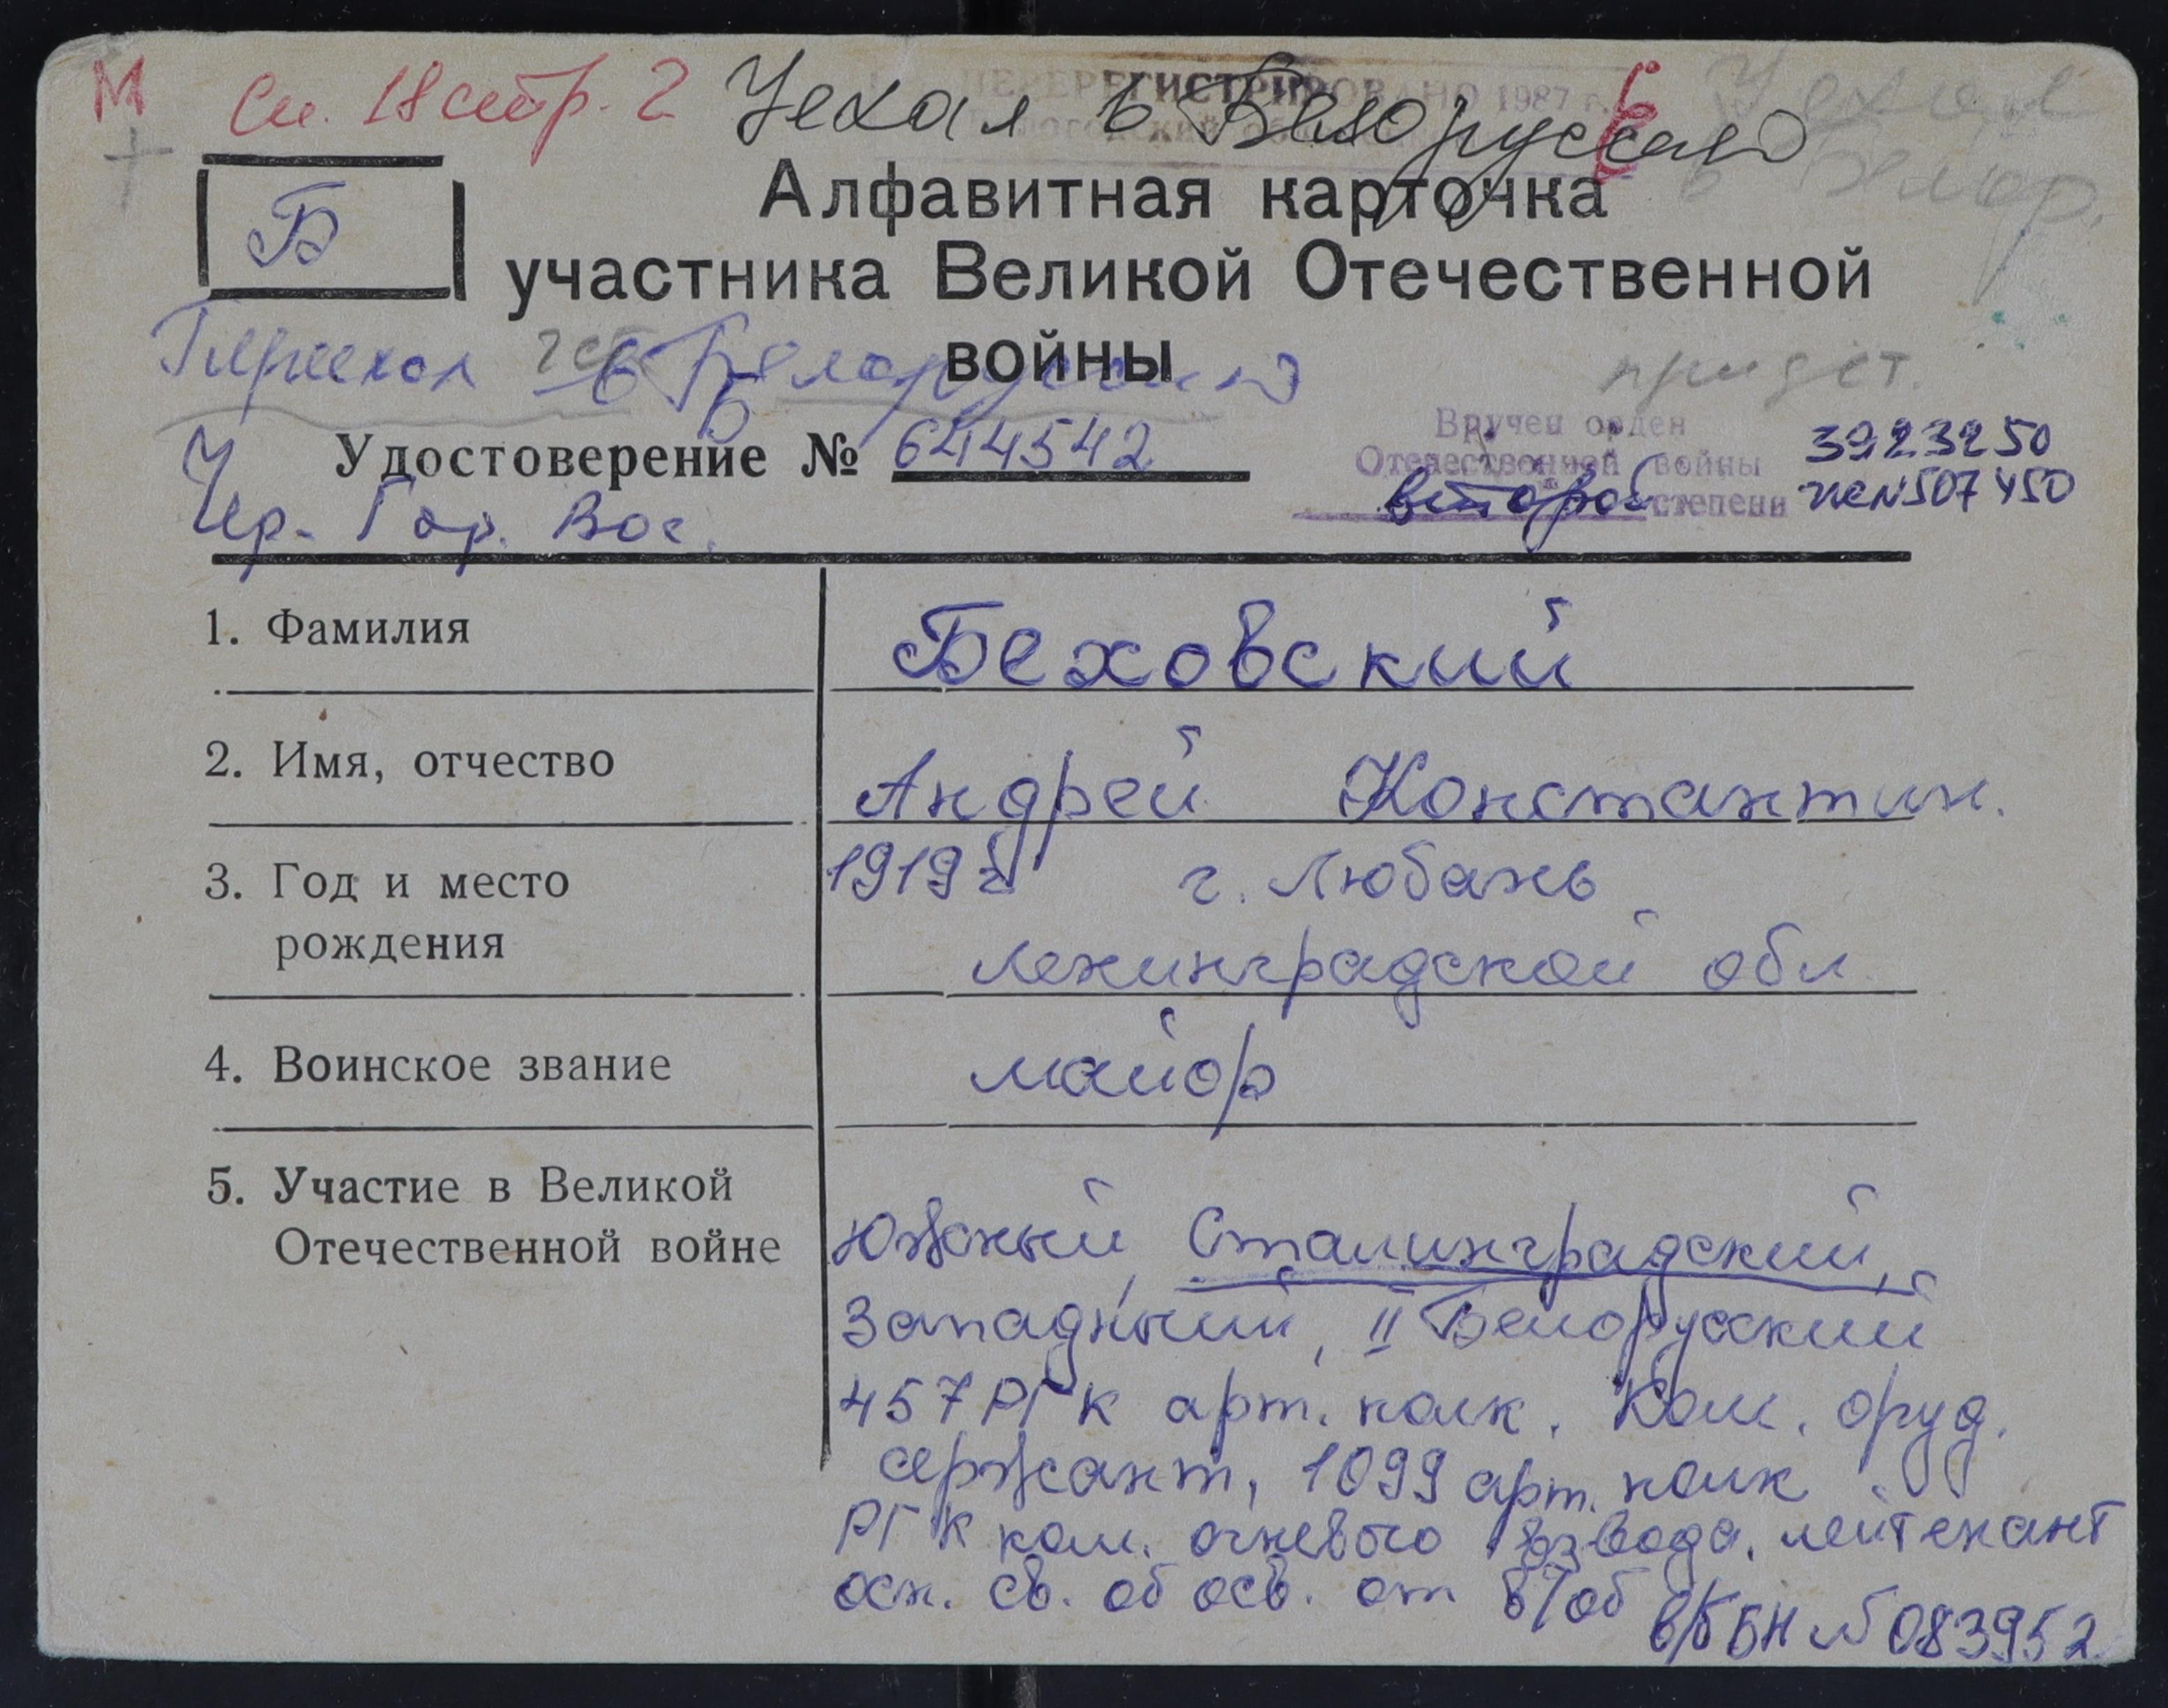 М См. 18 стр. 2 Уехал в Белоруссию
ПЕРЕРЕГИСТРИРОВАНО 1987 г.
Уехал
в Белор.
Б
Алфавитная карточка
участника Великой Отечественной
войны
Переехал в Белоруссию
придёт.
Удостоверение № 644542
Вручен орден
Отечественной войны 3923250
второй степени № 507450
Чер. Гор. Вос.
1. Фамилия Беховский
2. Имя, отчество Андрей Константин.
3. Год и место 1919 г г. Любань
рождения Ленинградской обл
4. Воинское звание майор
5. Участие в Великой
Отечественной войне Южный, Сталинградский,
Западный, II Белорусский
457 РГК арт. полк. Ком. оруд.
сержант, 1099 арт. полк
РГК ком. огневого взвода. лейтенант
осн. св. об осв. от в/об в/б БН № 083952